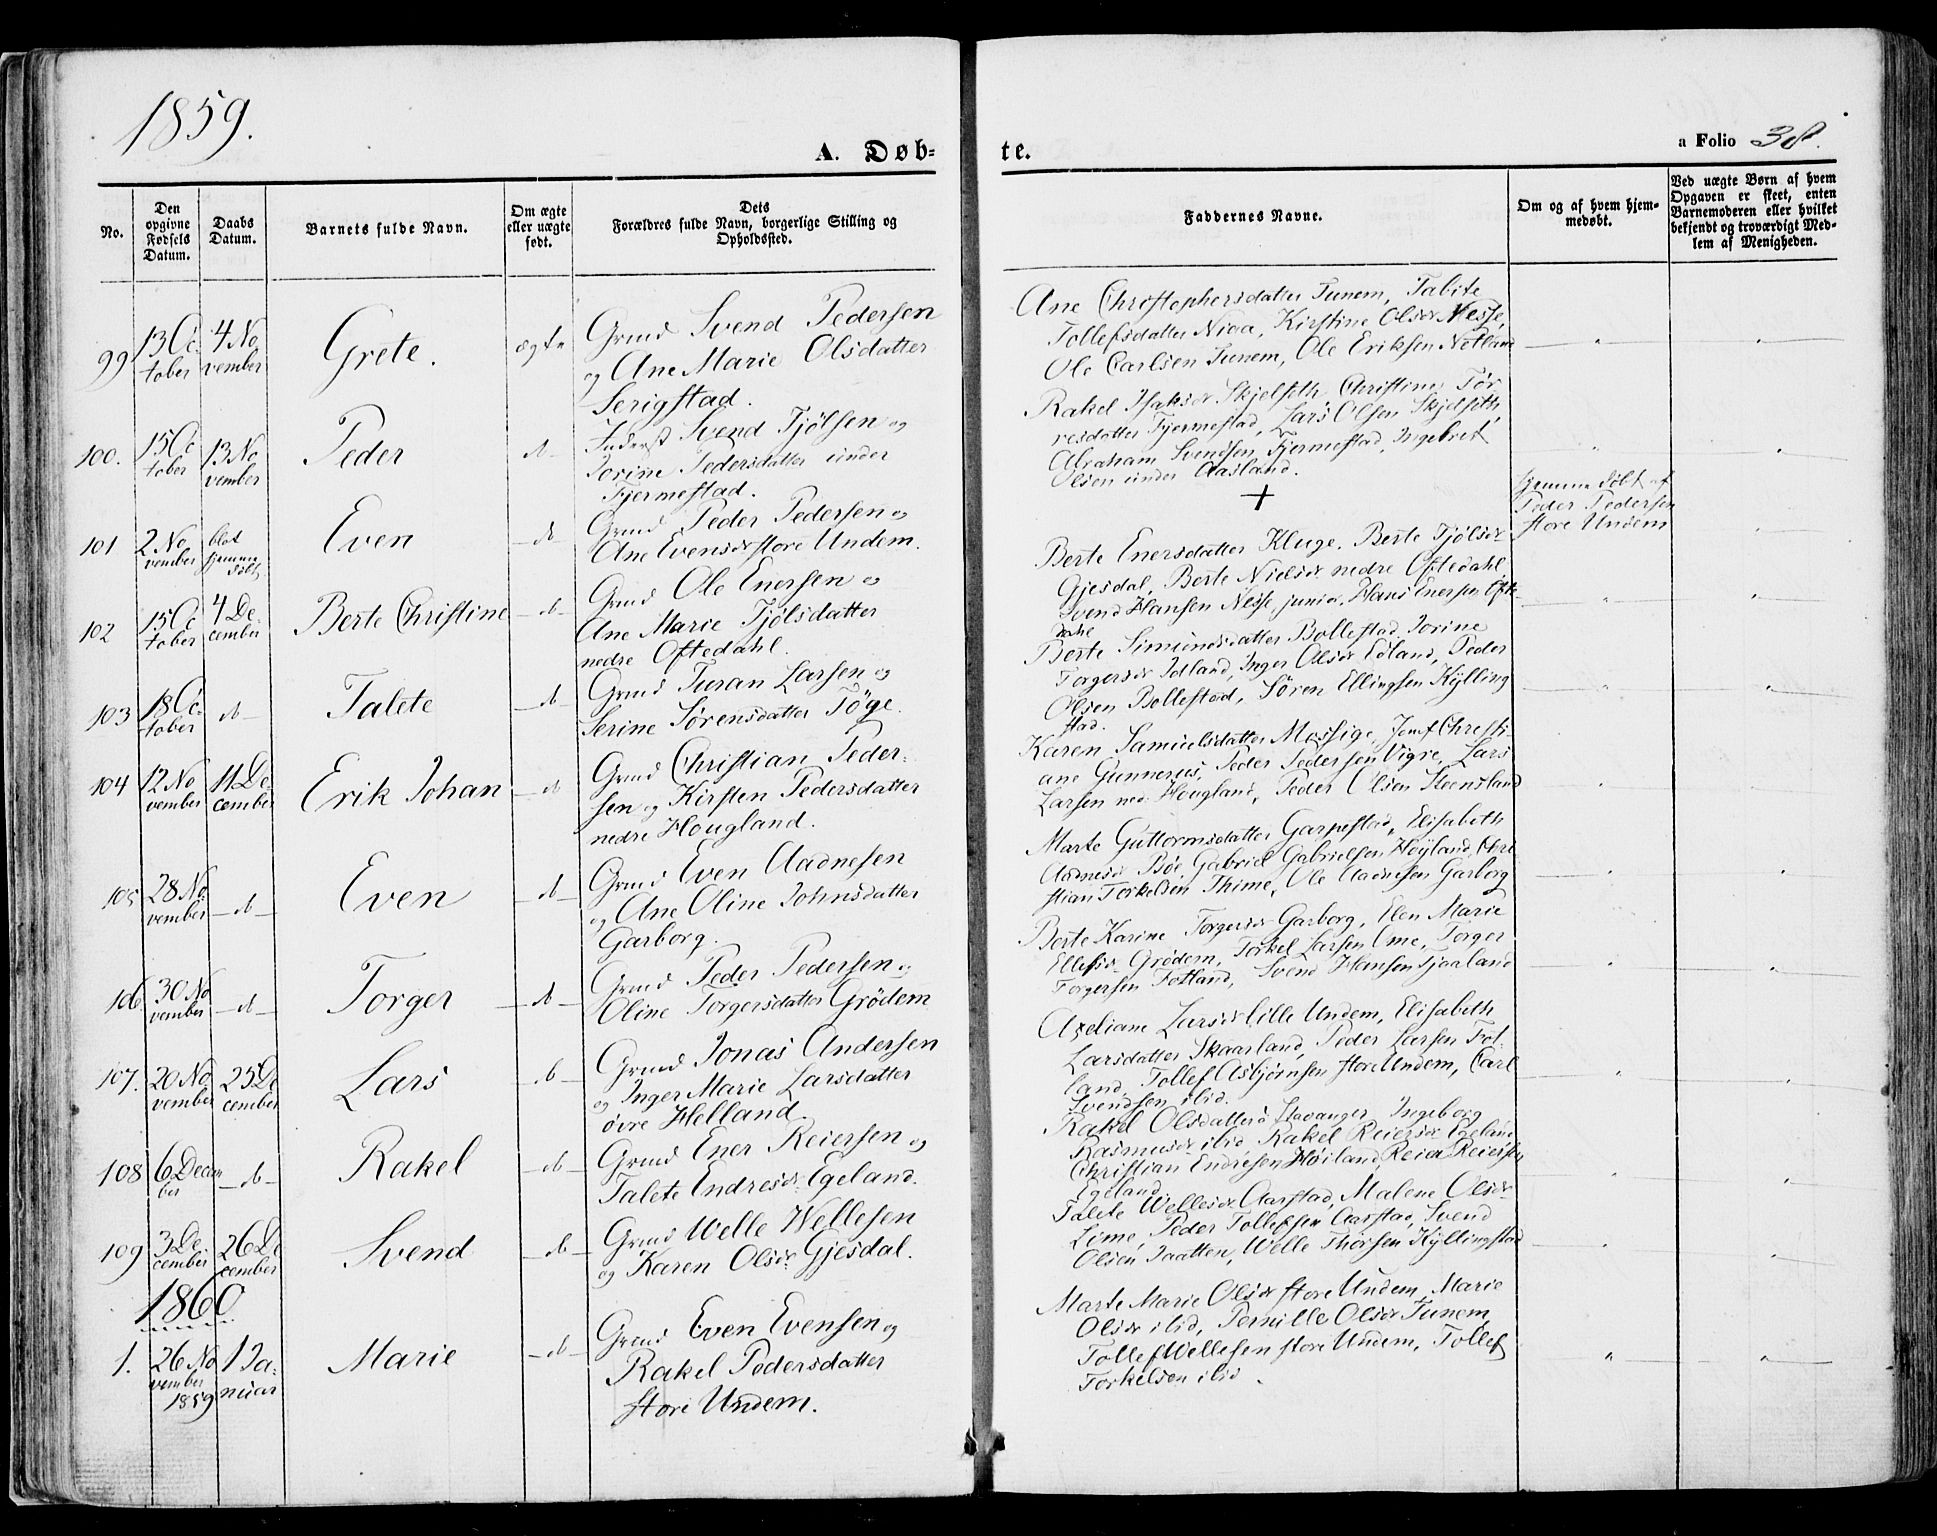 1859.
A. Døb-
te.
a Folio 38.
No.
Den opgivne Fødsels Datum.
Daabs Datum.
Barnets fulde Navn.
Om ægte eller uægte født.
Dets Forældres fulde Navn, borgerlige Stilling og Opholdssted.
Faddernes Navne.
Om og af hvem hjemmedøbt.
Ved uægte Børn af hvem Opgaven er skeet, enten Barnemoderen eller hvilket bekjendt og troværdigt Medlem af Menigheden.
99
13 Oc
tober
4 No
vember
Grete.
ægte
Grmd Svend Pedersen
og Ane Marie Olsdatter
Serigstad.
Ane Christophersdatter Tunem, Tabite
Tollefsdatter Nioa, Kirstine Olsdr Nesse,
Ole Carlsen Tunem, Ole Eriksen Netland
100.
15 Oc
tober
13 No
vember
Peder
do
Inderst Svend Tjølsen og
Jorine Pedersdatter under
Fjermestad.
Rakel Isaksdr Skjelseth, Christine Tør
resdatter Fjermestad, Lars Olsen Skjelseth,
Abraham Svendsen Fjermestad, Ingebret
Olsen under Aasland.
101
2 No
vember
blot
hjemme
døbt
Even
do
Grmd Peder Pedersen og
Ane Evensdr store Undem.
+
hjemme døbt af
Peder Pedersen
store Undem
102
15 Oc
tober
4 De
cember
Berte Christine
do
Grmd Ole Enersen og
Ane Marie Tjølsdatter
nedre Oftedahl.
Berte Enersdatter Kluge, Berte Tjølsdr
Gjesdal, Berte Nielsdr nedre Oftedahl
Svend Hansen Nesse junior, Hans Enersen Ofte
dahl
103
18 Oc
tober
do
Talete
do
Grmd Turan Larsen og
Serine Sørensdatter Tøge.
Berte Simonsdatter Bollestad, Jorine
Torgersdr Idland, Inger Olsdr Edland, Peder
Olsen Bollestad, Søren Ellingsen Kylling
stad.
104
12 No
vember
11 De
cember
Erik Johan
do
Grmd Christian Peder-
sen og Kirsten Pedersdatter
nedre Hougland.
Karen Samuelsdatter Mossige, Jomf Christi-
ane Gunnerus, Peder Pedersen Vigre, Lars
Larsen ned: Hougland, Peder Olsen Steensland
105
28 No
vember
do
Even
do
Grmd Even Aadnesen
og Ane Oline Johnsdatter
Garborg.
Marte Guttormsdatter Garpestad, Elisabeth
Aadnesdr Bøe, Gabriel Gabrielsen Høyland, Chri
stian Torkelsen Thime, Ole Aadnesen Garborg
106
30 No
vember
do
Torger
do
Grmd Peder Pedersen og
Oline Torgersdatter Grødem
Berte Karine Torgersdr Garborg, Elen Marie
Ellefsdr Grødem, Torkel Larsen Ome, Torger
Torgersen Fotland, Svend Hansen Tjaaland
107.
20 No
vember
25 De
cember
Lars
do
Grmd Jonas Andersen
og Inger Marie Larsdatter
øvre Helland.
Axeliane Larsdr lille Undem, Elisabeth
Larsdatter Skaarland, Peder Larsen Fot-
land, Tollef Asbjørnsen store Undem, Carl
Svendsen ibid.
108
6 Decem
ber
do
Rakel
do
Grmd Ener Reiersen og
Talete Endresdr Egeland.
Rakel Olsdatter Stavanger, Ingeborg
Rasmusdr ibid Rakel Reiersdr Egeland
Christian Endresen Høiland, Reier Reiersen
Egeland
109
3 De
cember
26 De
cember
Svend
do
Grmd Welle Wellesen
og Karen Olsdr Gjesdal.
Talete Wellesdr Aarstad, Malene Olsdr
Lime, Peder Tollefsen Aarstad, Svend
Olsen Jaatten, Welle Thorsen Kyllingstad
1860
1.
26 No
vember
1859
1 Ja-
nuar
Marie
do
Grmd Even Evensen og
Rakel Pedersdatter
store Undem.
Marte Marie Olsdr store Undem, Marie
Olsdr ibid, Pernille Olsdr Tunem,
Tollef Wellesen store Undem, Tollef
Torkelsen ibid.